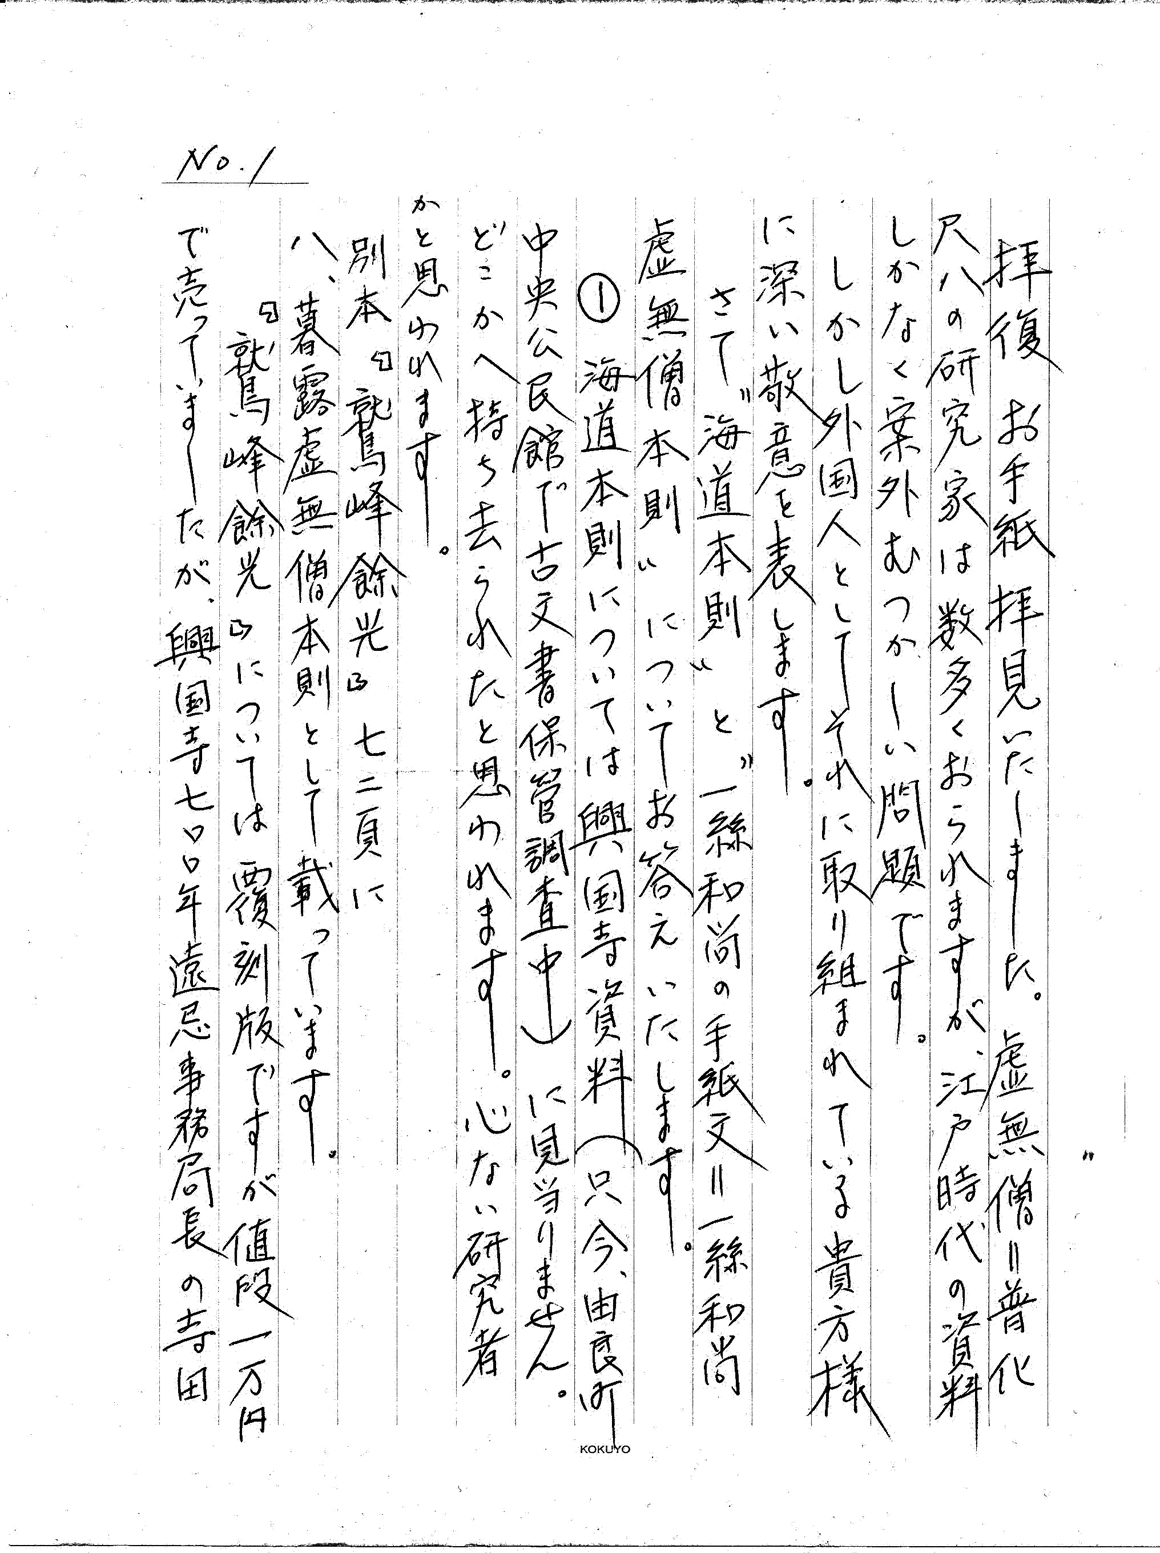 No.1
拝復 お手紙拝見いたしました。虚無僧=普化
尺八の研究家は数多くおられますが、江戸時代の資料
しかなく案外むつかしい問題です。
しかし外国人としてそれに取り組まれている貴方様
に深い敬意を表します。
さて"海道本則"と"一絲和尚の手紙文=一絲和尚
虚無僧本則"についてお答えいたします。
① 海道本則については興国寺資料(只今、由良町
中央公民館で古文書保管調査中)に見当りません。
どこかへ持ち去られたと思われます。心ない研究者
かと思われます。
別本『鷲峰餘光』七二頁に
八、暮露虚無僧本則として載っています。
『鷲峰餘光』については覆刻版ですが値段一万円
で売っていましたが、興国寺七〇〇年遠忌事務局長の寺田
KOKUYO